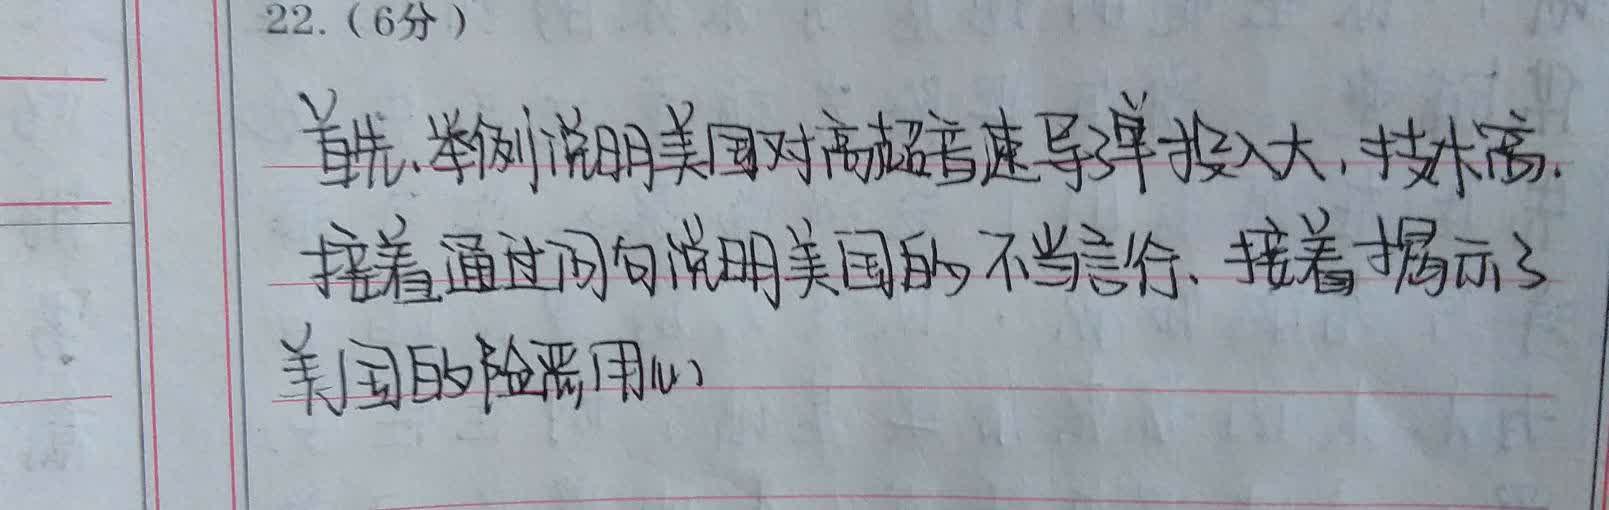 22.（6分）
首先、举例说明美国对高超音速导弹投入大，技术高.
接着通过问句说明美国的不当言行、接着揭示了
美国的险恶用心